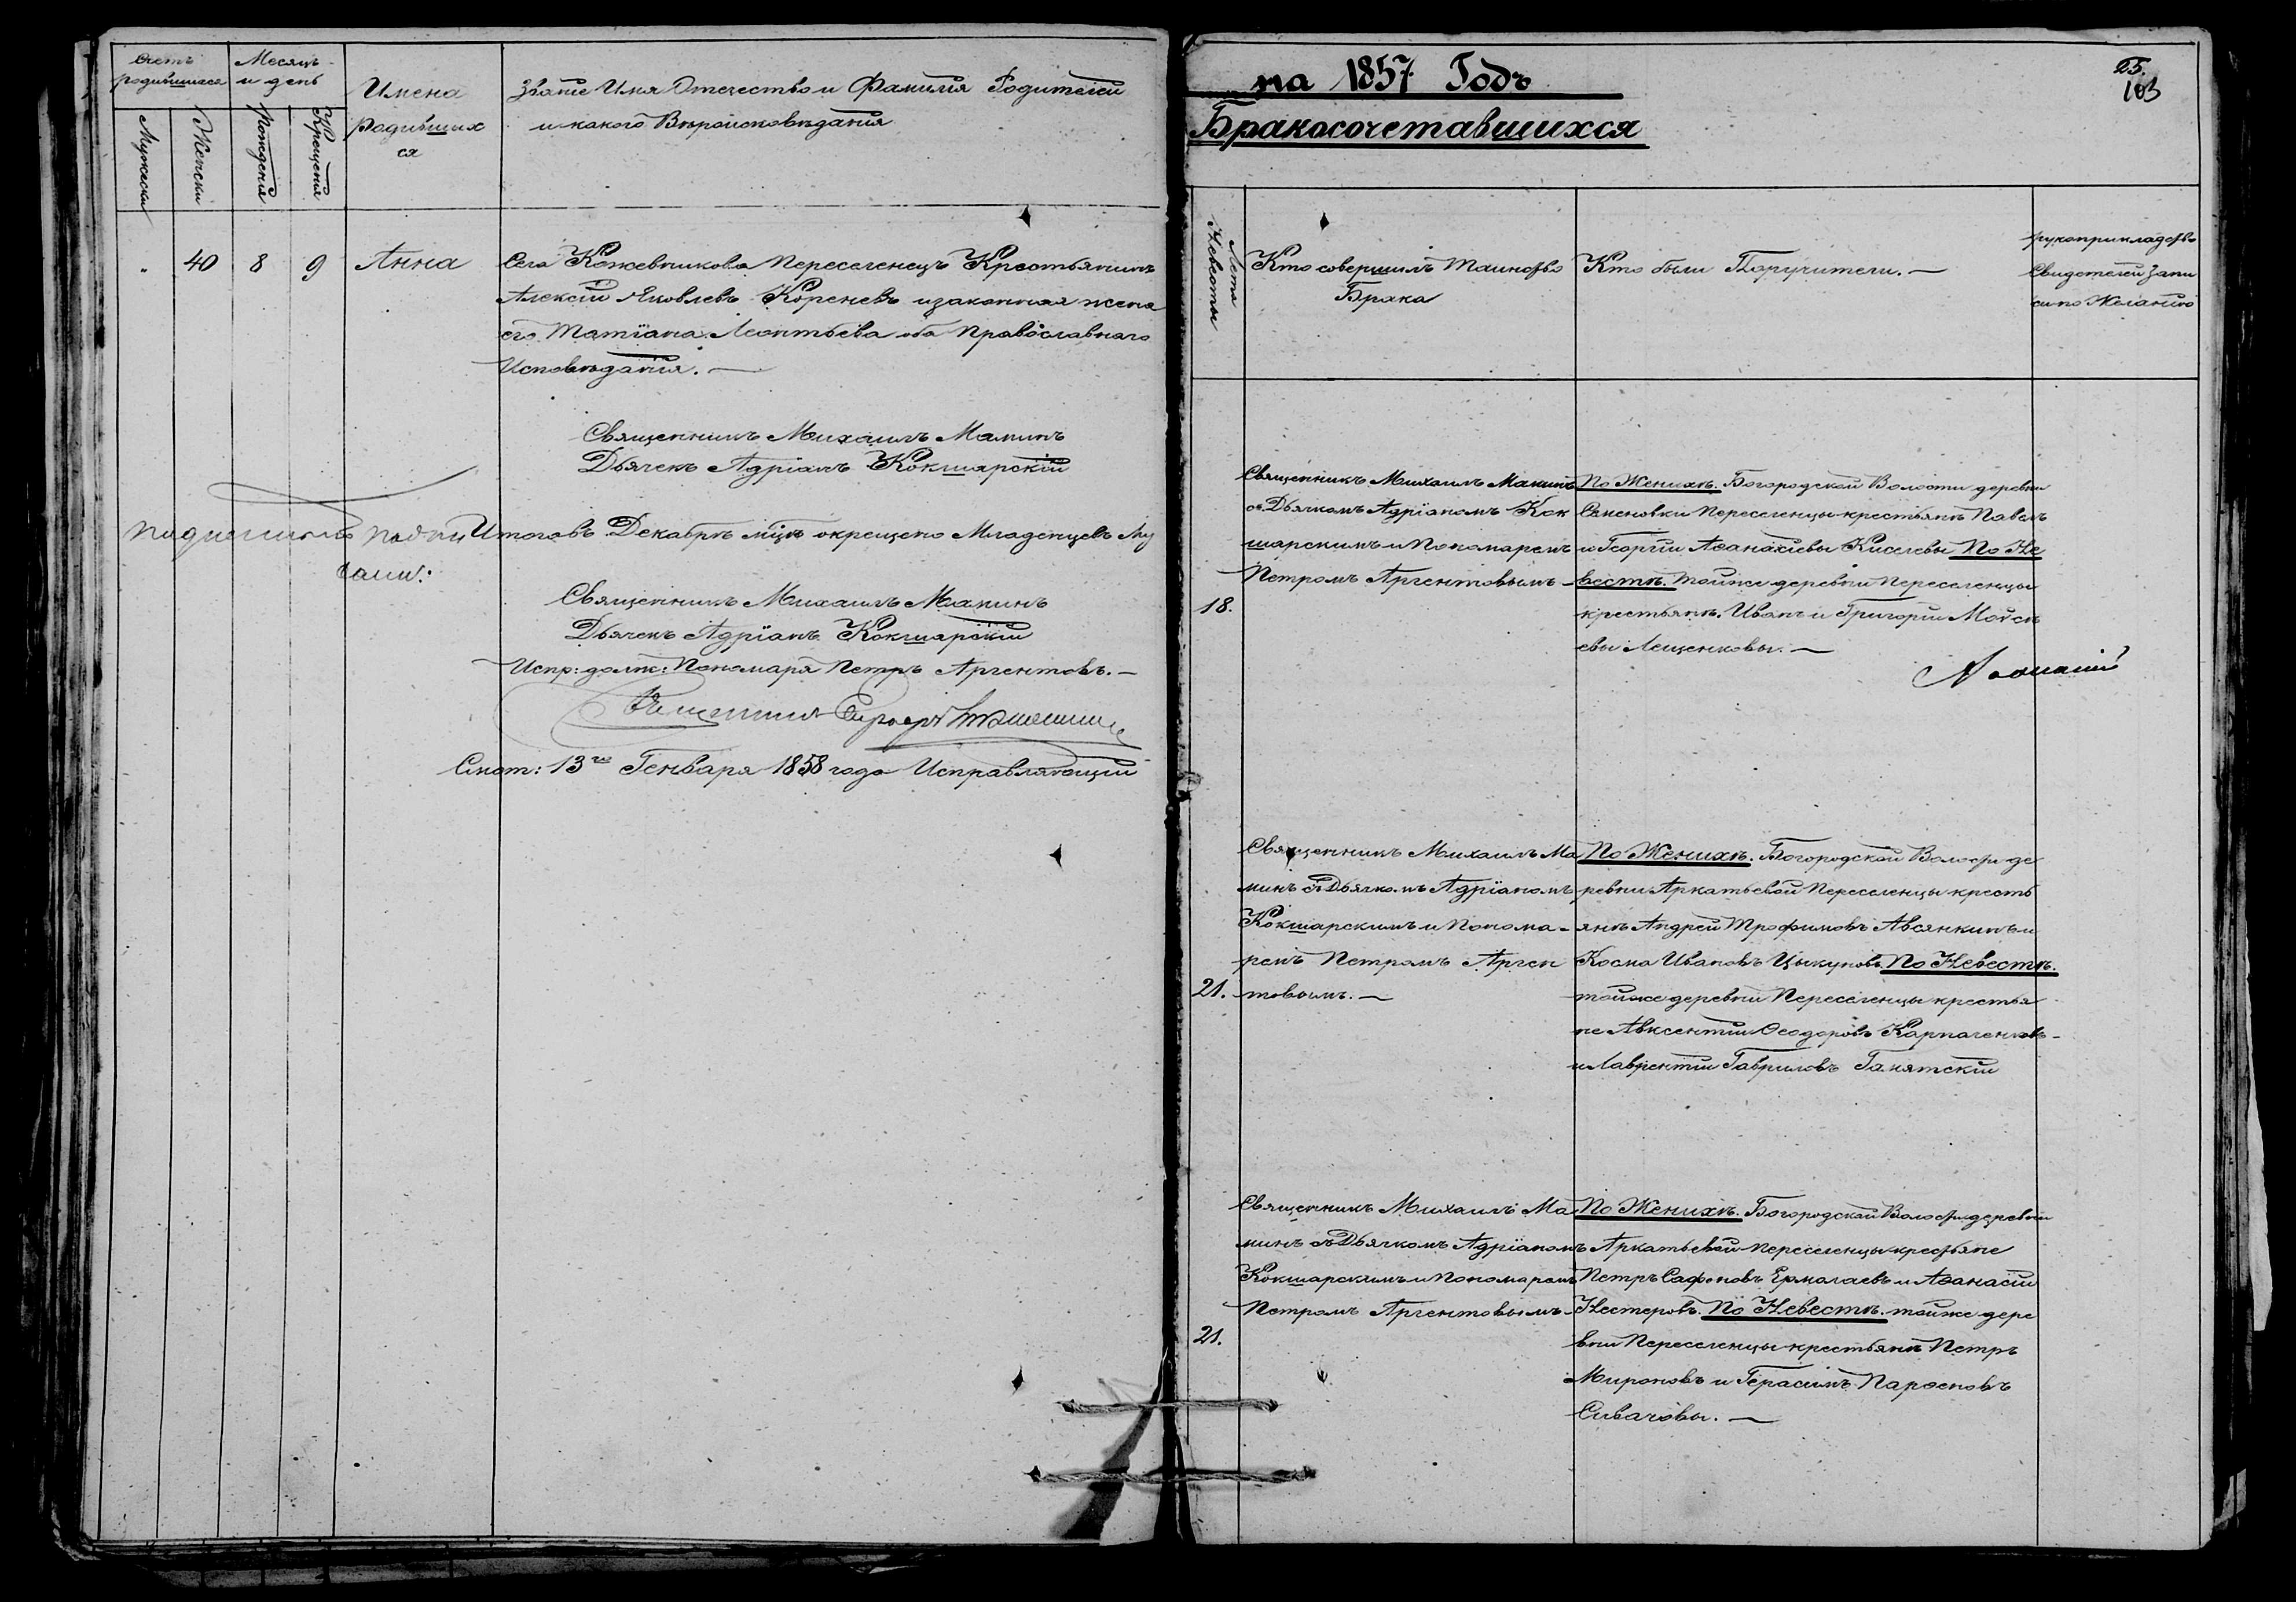 Счетъ родившихся
Месяцъ и день
Имена Родившихся
Мужески
Женски
Рожденія
Крещенія
Званіе Имя Отечество и Фамилія Родителей
и какого Вѣроисповѣданія
40 8 9 Анна
Села Кожевникова Переселенецъ Крестьянинъ
Алексій Яковлевъ Кореневъ и законная жена
его Татіана Леонтьева оба Православнаго
Исповѣданія. —
Священникъ Михаилъ Маминъ
Дьячекъ Адріанъ Кокшарскій
Итогъ Декабрѣ мцѣ окрещено Младенцевъ
Священникъ Михаилъ Маминъ
Дьячекъ Адріанъ Кокшарскій
Испр: долж: Пономаря Петръ Аргентовъ. —
Смот: 13го Генваря 1858 года Исправляющій
на 1857 Годъ
25.
103
Бракосочетавшихся
Лета Невесты
Кто совершилъ Таинство
Брака
Кто были Поручители. —
рукоприкладство
Свидетелей запи
си по Желанію
18.
Священникъ Михаилъ Маминъ
съ Дьячкомъ Адріаномъ Кок
шарскимъ и Пономаремъ
Петромъ Аргентовымъ
По Женихѣ. Богородской Волости деревни
Семеновки Переселенцы крестьянѣ Павелъ
и Георгіи Аѳанасіевы Киселевы По Не
вестѣ. тойже деревни Переселенцы
крестьянѣ. Иванъ и Григорій Мойсѣ
евы Лещенковы. —
21.
Священникъ Михаилъ Ма
минъ съ Дьячкомъ Адріаномъ
Кокшарскимъ и Понома-
ремъ Петромъ Арген
товымъ. —
По Женихѣ. Богородской Волости де
ревни Аркатьевой Переселенцы кресть
янѣ Андрей Трофимовъ Авсянкинъ и
Косма Ивановъ Цыкуновъ. По Невестѣ.
тойже деревни Переселенцы крестья
не Авксентій Ѳеодоровъ Карпаченковъ
и Лаврентій Гавриловъ
21.
Священникъ Михаилъ Ма
минъ съ Дьячкомъ Адріаномъ
Кокшарскимъ и Пономаремъ
Петромъ Аргентовымъ
По Женихѣ. Богородской Волости деревни
Аркатьевой Переселенцы крестьяне
Петръ Сафоновъ Ермалаевъ и Аѳанасій
Нестеровъ. По Невестѣ. тойже дере
вни Переселенцы крестьянѣ Петръ
Мироновъ и Герасимъ Парѳеновъ
Сивачовы. —